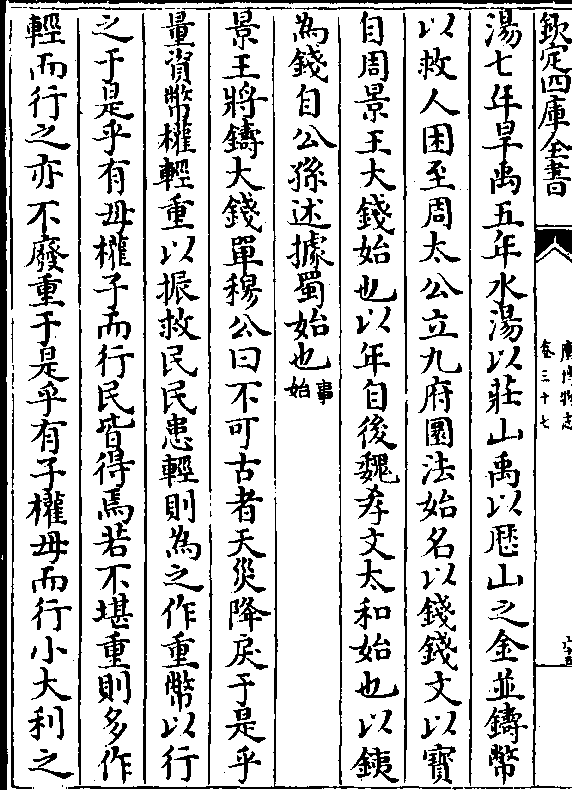 欽定四庫全書
廣博物志
卷三十七
湯七年旱禹五年水湯以莊山禹以歷山之金並鑄幣
以救人困至周太公立九府圜法始名以錢錢文以寶
自周景王大錢始也以年自後魏孝文太和始也以銕
為錢自公孫述據蜀始也事始
景王將鑄大錢單穆公曰不可古者天災降戾于是乎
量資幣權輕重以振救民民患輕則為之作重幣以行
之于是乎有母權子而行民皆得焉若不堪重則多作
輕而行之亦不廢重于是乎有子權母而行小大利之